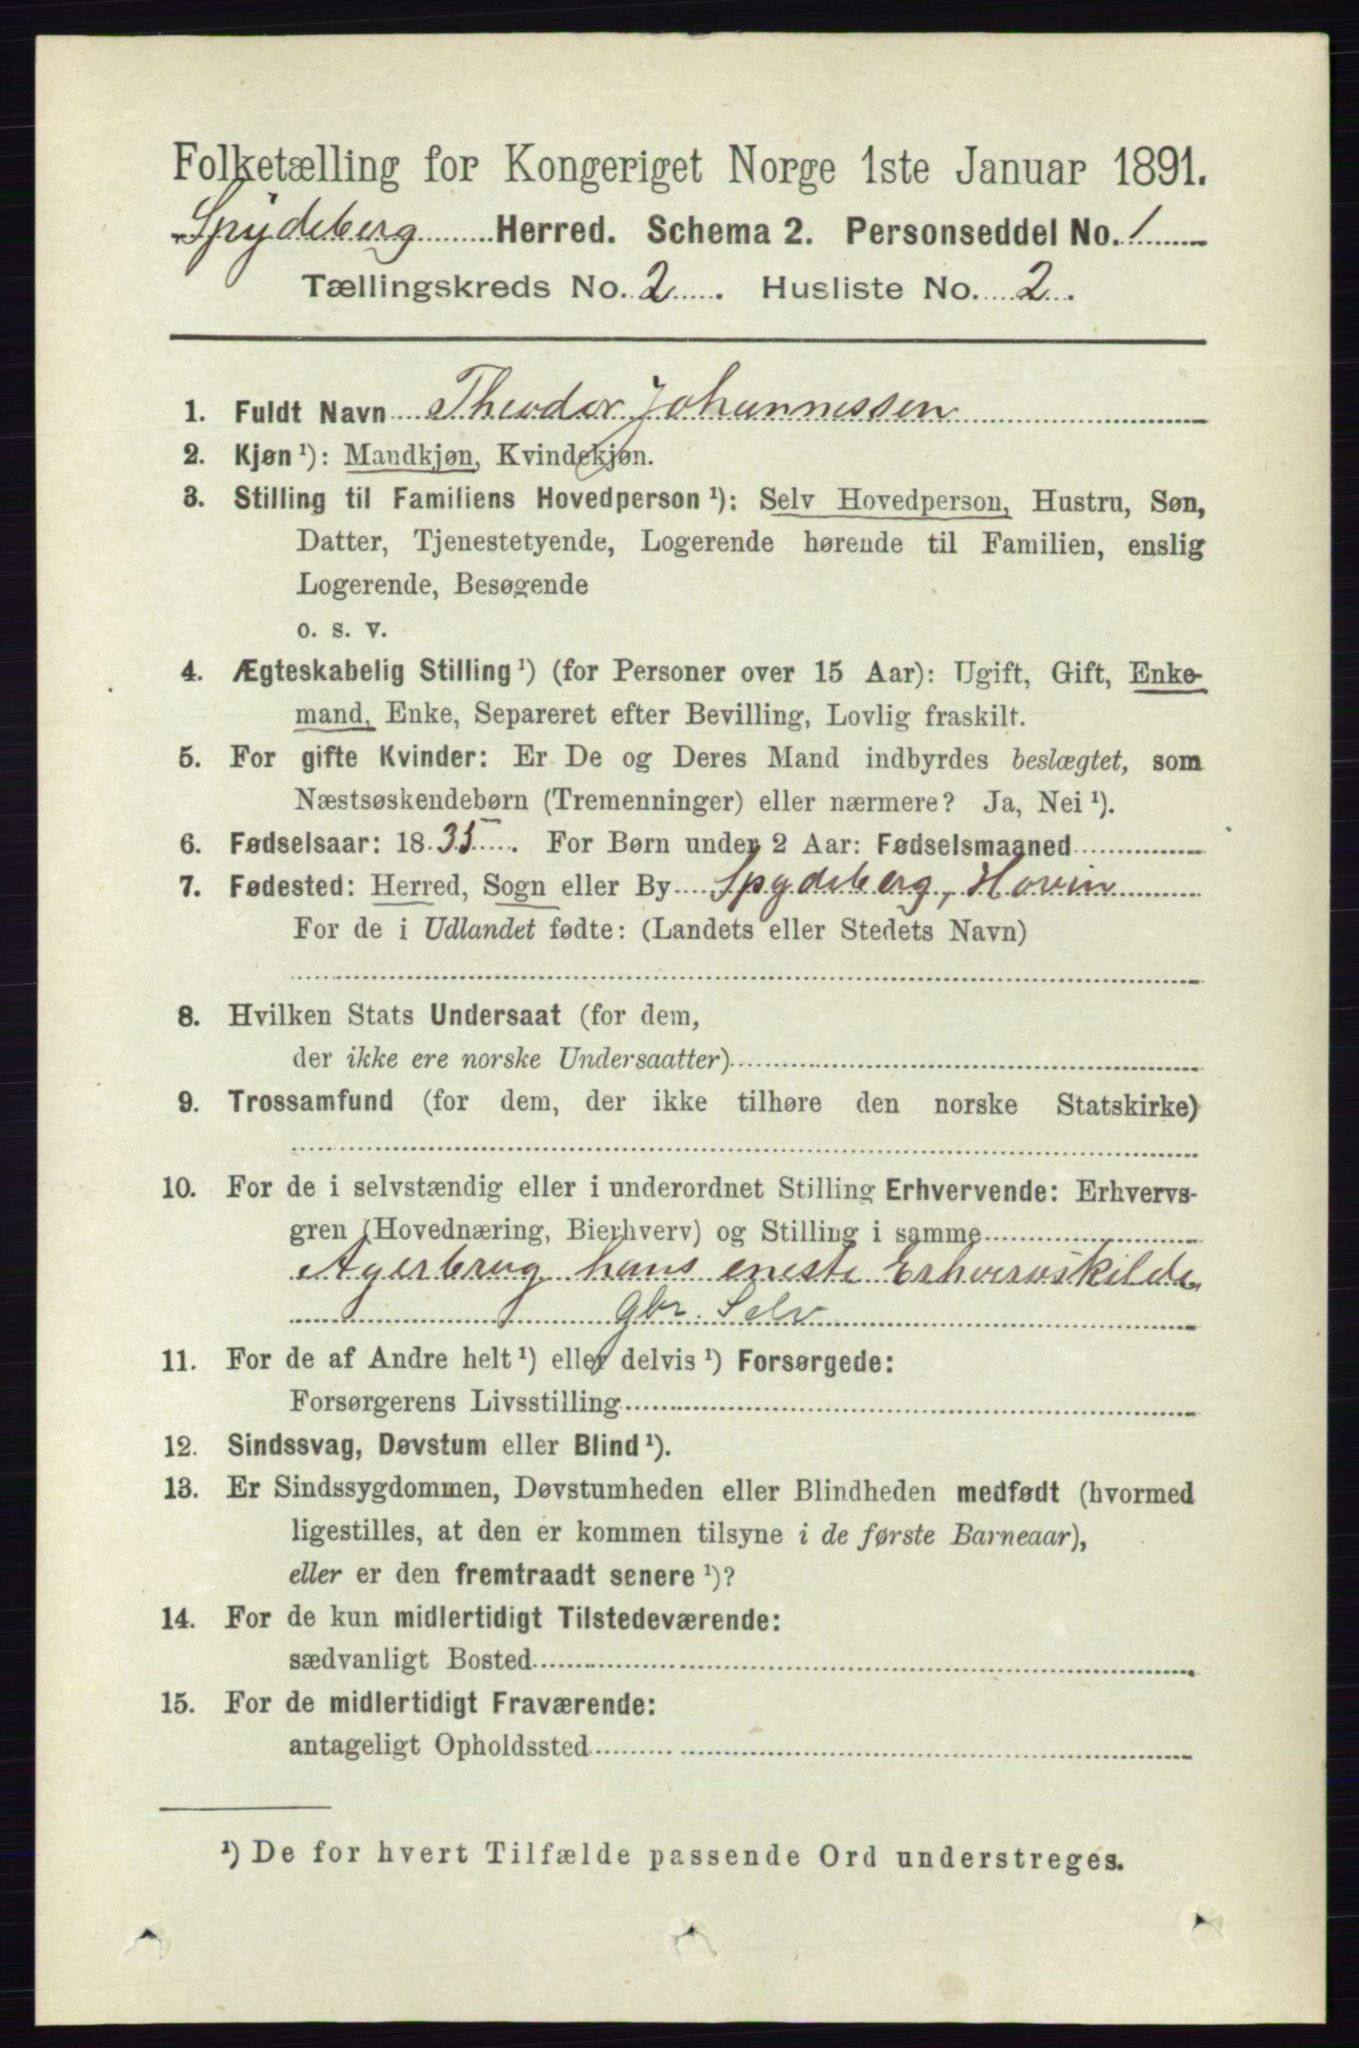 Folketælling for Kongeriget Norge 1ste Januar 1891.
Spydeberg Herred. Schema 2. Personseddel No. 1
Tællingskreds No. 2. Husliste No. 2.
1. Fuldt Navn Theodor Johannessen
2. Kjøn¹): Mandkjøn, Kvindekjøn.
3. Stilling til Familiens Hovedperson¹): Selv Hovedperson, Hustru, Søn,
Datter, Tjenestetyende, Logerende hørende til Familien, enslig
Logerende, Besøgende
o. s. v.
4. Ægteskabelig Stilling¹) (for Personer over 15 Aar): Ugift, Gift, Enke-
mand, Enke, Separeret efter Bevilling, Lovlig fraskilt.
5. For gifte Kvinder: Er De og Deres Mand indbyrdes beslægtet, som
Næstsøskendebørn (Tremenninger) eller nærmere? Ja, Nei¹).
6. Fødselsaar: 1835. For Børn under 2 Aar: Fødselsmaaned
7. Fødested: Herred, Sogn eller By Spydeberg, Hovin
For de i Udlandet fødte: (Landets eller Stedets Navn)
8. Hvilken Stats Undersaat (for dem,
der ikke ere norske Undersaatter)
9. Trossamfund (for dem, der ikke tilhøre den norske Statskirke)
10. For de i selvstændig eller i underordnet Stilling Erhvervende: Erhvervs-
gren (Hovednæring, Bierhverv) og Stilling i samme
Agerbrug hans eneste Erhvervskilde
gbr. Selv
11. For de af Andre helt¹) eller delvis¹) Forsørgede:
Forsørgerens Livsstilling
12. Sindssvag, Døvstum eller Blind¹).
13. Er Sindssygdommen, Døvstumheden eller Blindheden medfødt (hvormed
ligestilles, at den er kommen tilsyne i de første Barneaar),
eller er den fremtraadt senere¹)?
14. For de kun midlertidigt Tilstedeværende:
sædvanligt Bosted
15. For de midlertidigt Fraværende:
antageligt Opholdssted
¹) De for hvert Tilfælde passende Ord understreges.